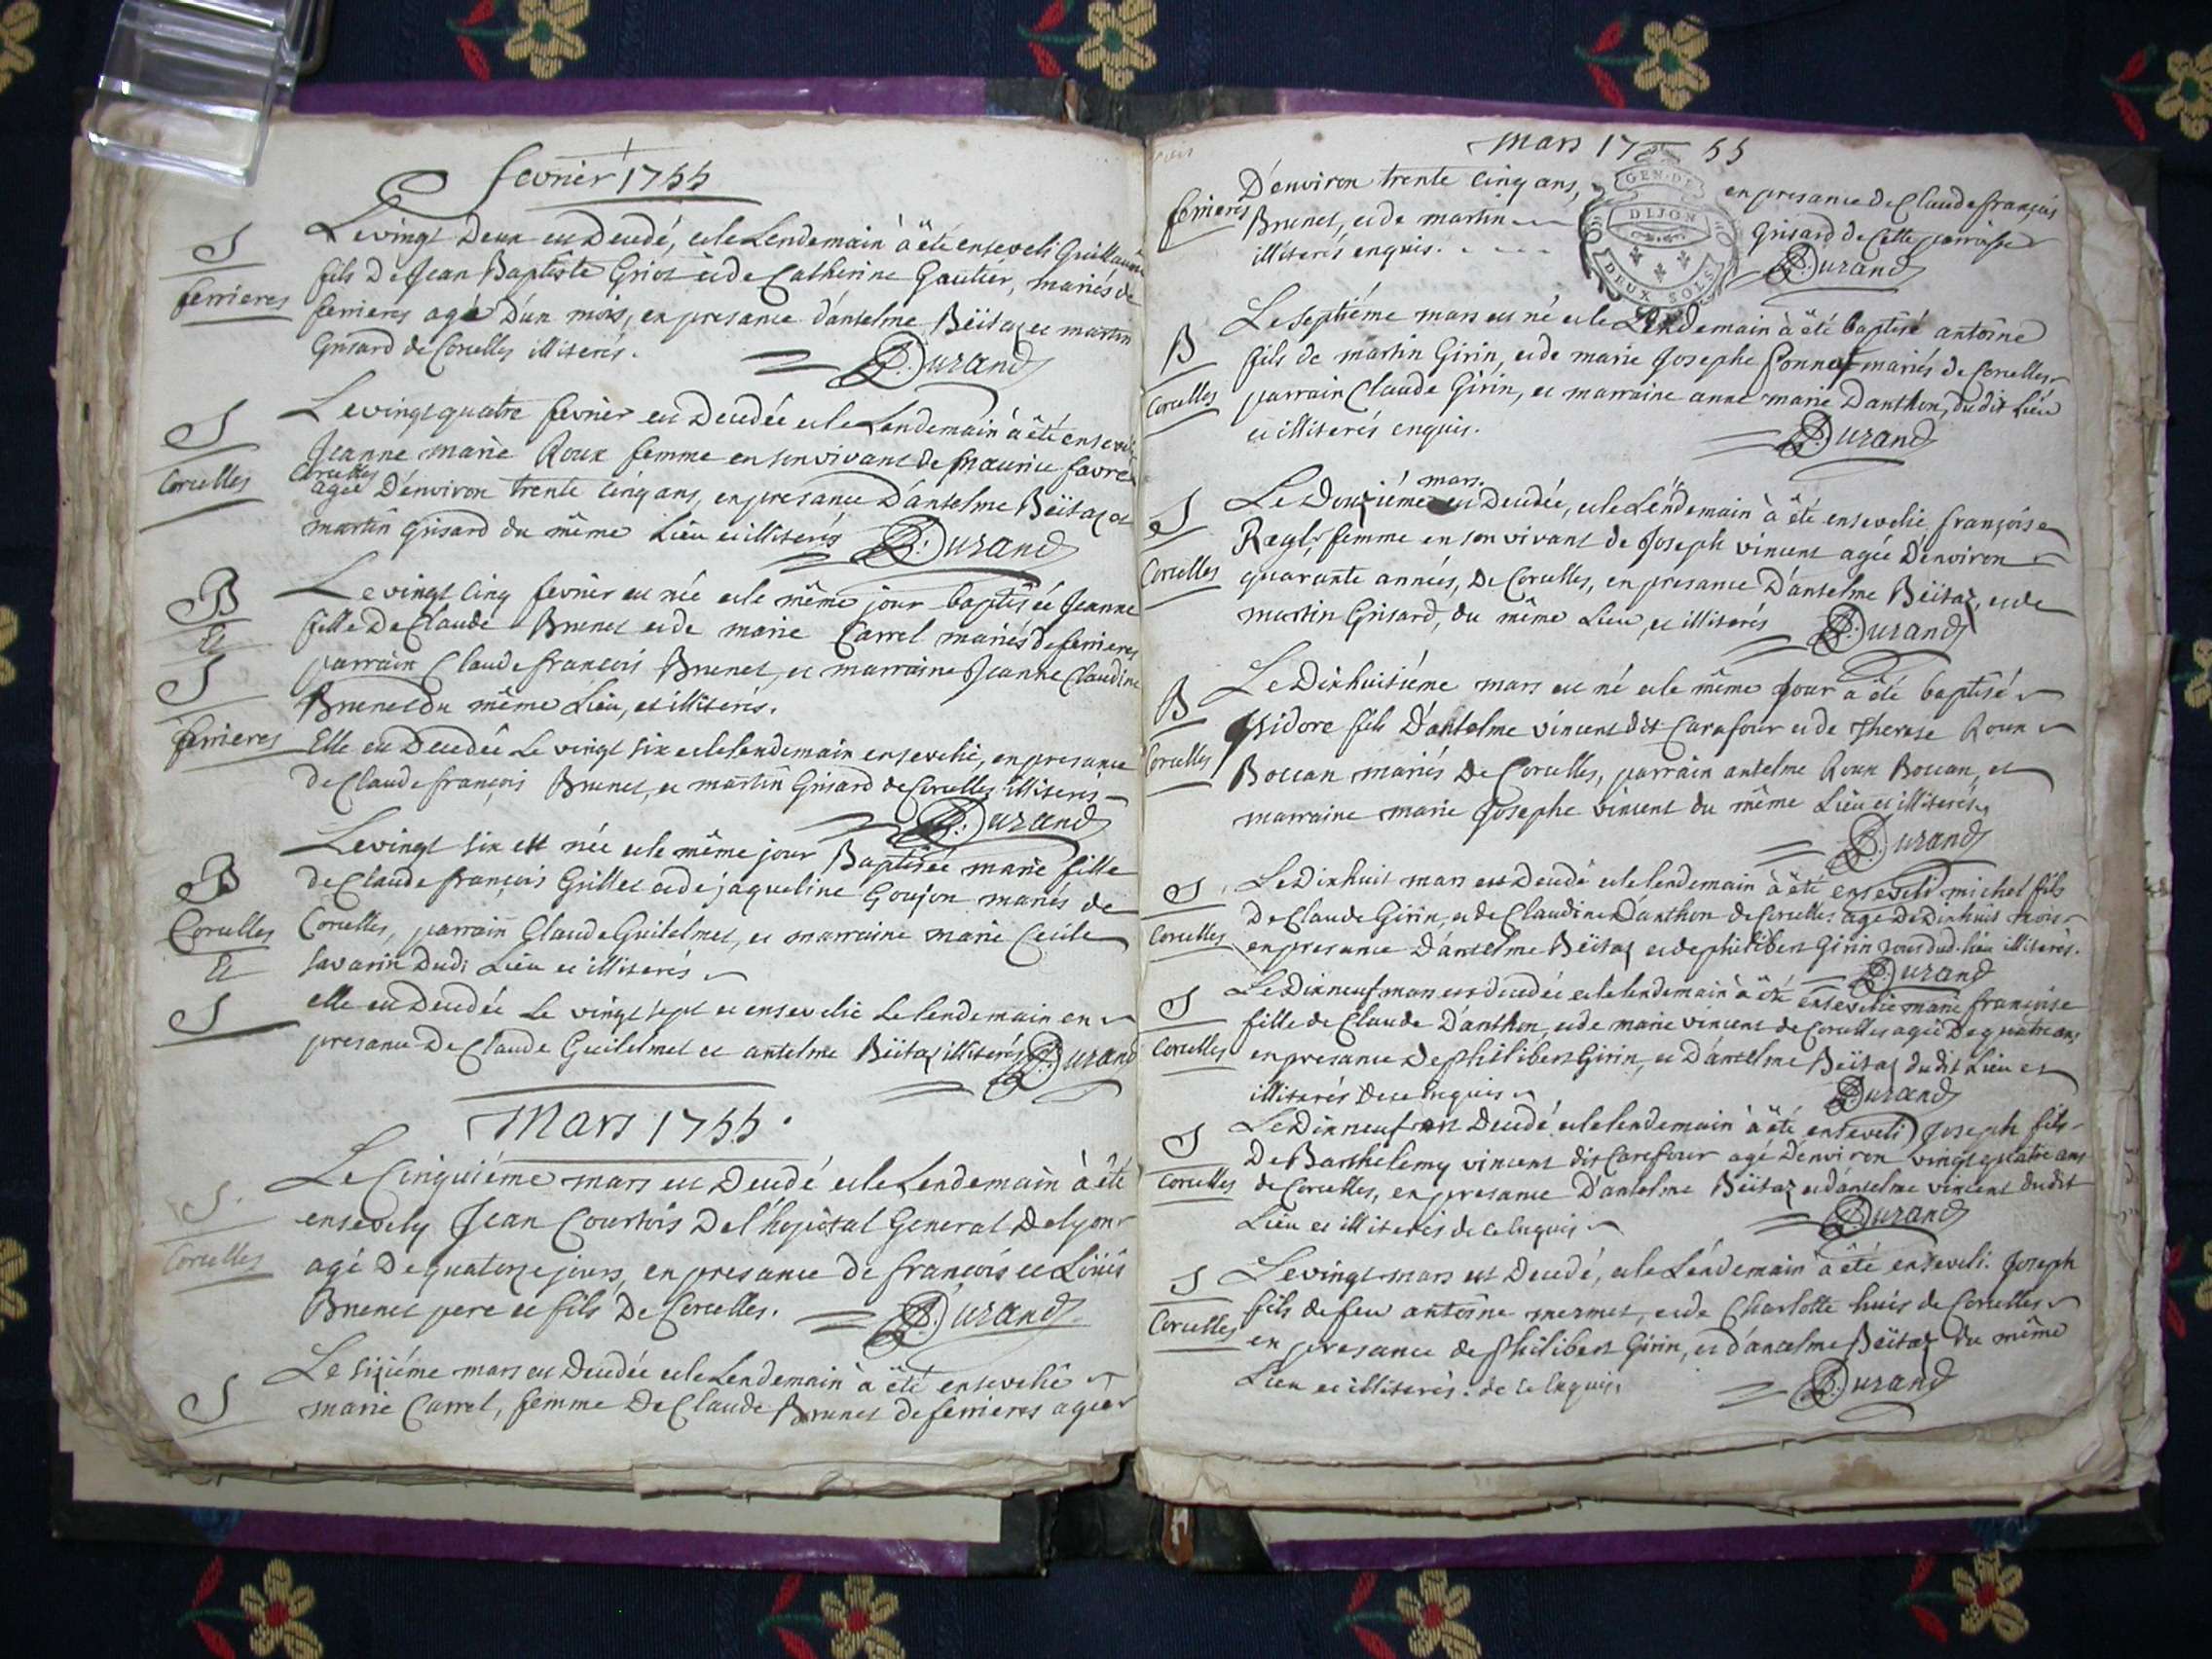 fevrier 1755
S
ferrieres
Le vingt Deux est Decedé, et le Lendemain à été enseveli Guillaume
fils De Jean Baptiste Griot et de Catherine Gautier, mariés de
ferrieres agé D'un mois, en presance d'antelme Béitaz et martin
Grisard de Corcelles illiterés.
D. Durand
S
Corcelles
Le vingt quatre fevrier est Decedée et le Lendemain à été ensevelie
Jeanne marie Roux femme en son vivant de maurice favre
Corcelles
agée D'environ trente cinq ans, en presance D'antelme Béitaz et
martin Grisard du même Lieu et illiterés
D. Durand
B
Et
S
ferrieres
Le vingt cinq fevrier est née et le même jour baptisée Jeanne
fille De Claude Brunet et de marie Carrel mariés de ferrieres
parrain Claude françois Brunet, et marraine Jeanne Claudine
Brunet du même Lieu, et illiterés.
Elle est Decedée Le vingt six et le lendemain ensevelie, en presance
de Claude françois Brunet, et martin Grisard de Corcelles illiterés
D. Durand
B
Corcelles
Et
S
Le vingt six est née et le même jour Baptisée marie fille
de Claude françois Grillet et de jaqueline Goujon mariés de
Corcelles, parrain Claude Guilelmet, et marraine marie Cecile
Savarin Dudi Lieu et illiterés
elle est Decedée Le vingt sept et ensevelie Le lendemain en
presance De Claude Guilelmet et antelme Béitaz illiterés D. Durand
Mars 1755.
S.
Corcelles
Le Cinquiéme mars est Decedé et le Lendemain à été
ensevely Jean Courtois De l'hopital General De lyon
agé De quatorze jours, en presance de françois et Löuis
Brunet pere et fils De Corcelles.
D. Durand
S
Le sixiéme mars est Decedée et le Lendemain à été ensevelie
marie Carrel, femme De Claude Brunet de ferrieres agée
Mars 17 55
GEN. DE
DIJON
DEUX SOLS
ferrieres
D'environ trente cinq ans, en presance de Claude françois
Brunet, et de martin Grisard de Cette parroisse
illiterés enquis.
D. Durand
B
Corcelles
Le septiéme mars est né et le Lendemain à été baptisé antoine
fils de martin Girin, et de marie Josephe Sonnet mariés de Corcelles
parrain Claude Girin, et marraine anne marie Danthon, du dit Lieu
et illiterés enquis.
D. Durand
S
Corcelles
mars.
Le Douziéme est Decedée, et le Lendemain à été ensevelie, françoise
femme en son vivant de Joseph vincent agée D'environ
quarante années, De Corcelles, en presance D'antelme Béitaz, et de
martin Grisard, du même Lieu, et illiterés
D. Durand
B
Corcelles
Le Dixhuitiéme mars est né et le même Jour à été baptisé
Isidore fils D'antelme vincent dit Carafour et de Therese Roux
Boccan mariés De Corcelles, parrain antelme Roux Boccan, et
marraine marie Josephe vincent du même Lieu et illiterés,
D. Durand
S
Corcelles
Le Dixhuit mars est Decedé et le lendemain à été enseveli michel fils
De Claude Girin, et de Claudine D'anthon de Corcelles agé De Dixhuit mois
en presance D'antelme Béitaz et de philibert Girin tous dud. lieu illiterés.
D. Durand
S
Corcelles
Le Dixneuf mars est decedée et le lendemain à été ensevelie marie françoise
fille de Claude D'anthon, et de marie vincent de Corcelles agée De quatre ans
en presance De philibert Girin, et D'antelme Béitaz du dit Lieu et
illiterés de ce enquis
D. Durand
S
Corcelles
Le Dixneuf est Decedé et le lendemain à été enseveli Joseph fils
De Barthelemy vincent dit Carefour agé D'environ vingt quatre ans
de Corcelles, en presance D'antelme Béitaz et d'antelme vincent du dit
Lieu et illiterés de ce enquis
D. Durand
S
Corcelles
Le vingt mars est Decedé, et le Lendemain à été enseveli Joseph
fils de feu antoine mermet, et de Charlotte huis de Corcelles
en presance de philibert Girin, et d'antelme Béitaz du même
Lieu et illiterés. de ce enquis
D. Durand